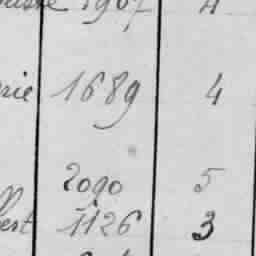 1907 4
rie 1689 4
2090 5
bert 1126 3